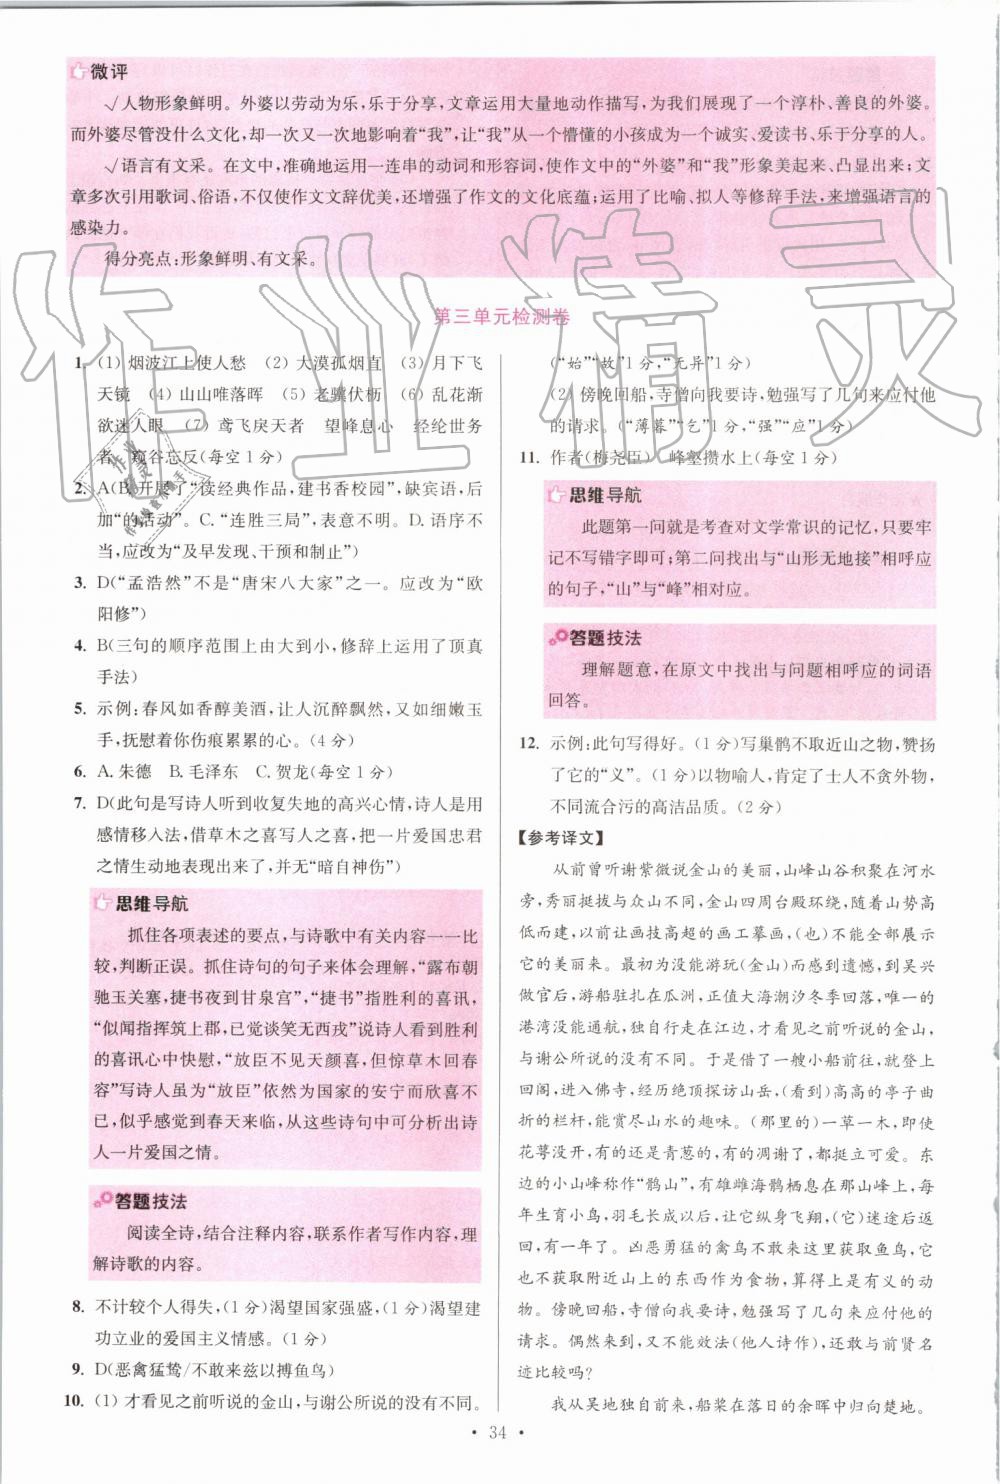 微评
√人物形象鲜明。外婆以劳动为乐,乐于分享,文章运用大量地动作描写,为我们展现了一个淳朴、善良的外婆。
而外婆尽管没什么文化,却一次又一次地影响着“我”,让“我”从一个懵懂的小孩成为一个诚实、爱读书、乐于分享的人。
√语言有文采。在文中,准确地运用一连串的动词和形容词,使作文中的“外婆”和“我”形象美起来、凸显出来;文
章多次引用歌词、俗语,不仅使作文文辞优美,还增强了作文的文化底蕴;运用了比喻、拟人等修辞手法,来增强语言的
感染力。
得分亮点:形象鲜明、有文采。
第三单元检测卷
1. (1) 烟波江上使人愁 (2) 大漠孤烟直 (3) 月下飞
天镜 (4) 山山唯落晖 (5) 老骥伏枥 (6) 乱花渐
欲迷人眼 (7) 鸢飞戾天者 望峰息心 经纶世务
者 窥谷忘反(每空1分)
2. A(B.开展了“读经典作品,建书香校园”,缺宾语,后
加“的活动”。C.“连胜三局”,表意不明。D.语序不
当,应改为“及早发现、干预和制止”)
3. D(“孟浩然”不是“唐宋八大家”之一。应改为“欧
阳修”)
4. B(三句的顺序范围上由大到小,修辞上运用了顶真
手法)
5. 示例:春风如香醇美酒,让人沉醉飘然,又如细嫩玉
手,抚慰着你伤痕累累的心。(4分)
6. A.朱德 B.毛泽东 C.贺龙(每空1分)
7. D(此句是写诗人听到收复失地的高兴心情,诗人是用
感情移入法,借草木之喜写人之喜,把一片爱国忠君
之情生动地表现出来了,并无“暗自神伤”)
思维导航
抓住各项表述的要点,与诗歌中有关内容一一比
较,判断正误。抓住诗句的句子来体会理解,“露布朝
驰玉关塞,捷书夜到甘泉宫”,“捷书”指胜利的喜讯,
“似闻指挥筑上郡,已觉谈笑无西戎”说诗人看到胜利
的喜讯心中快慰,“放臣不见天颜喜,但惊草木回春
容”写诗人虽为“放臣”依然为国家的安宁而欣喜不
已,似乎感觉到春天来临,从这些诗句中可分析出诗
人一片爱国之情。
答题技法
阅读全诗,结合注释内容,联系作者写作内容,理
解诗歌的内容。
8. 不计较个人得失,(1分)渴望国家强盛,(1分)渴望建
功立业的爱国主义情感。(1分)
9. D(恶禽猛鸷/不敢来兹以搏鱼鸟)
10. (1) 才看见之前听说的金山,与谢公所说的没有不同。
(“始”“故”1分,“无异”1分)
(2) 傍晚回船,寺僧向我要诗,勉强写了几句来应付他
的请求。(“薄暮”“乞”1分,“强”“应”1分)
11. 作者(梅尧臣) 峰壑攒水上(每空1分)
思维导航
此题第一问就是考查对文学常识的记忆,只要牢
记不写错字即可;第二问找出与“山形无地接”相呼应
的句子,“山”与“峰”相对应。
答题技法
理解题意,在原文中找出与问题相呼应的词语
回答。
12. 示例:此句写得好。(1分)写巢鹘不取近山之物,赞扬
了它的“义”。(1分)以物喻人,肯定了士人不贪外物,
不同流合污的高洁品质。(2分)
【参考译文】
从前曾听谢紫微说金山的美丽,山峰山谷积聚在河水
旁,秀丽挺拔与众山不同,金山四周台殿环绕,随着山势高
低而建,以前让画技高超的画工摹画,(也)不能全部展示
它的美丽来。最初为没能游玩(金山)而感到遗憾,到吴兴
做官后,游船驻扎在瓜洲,正值大海潮汐冬季回落,唯一的
港湾没能通航,独自行走在江边,才看见之前听说的金山,
与谢公所说的没有不同。于是借了一艘小船前往,就登上
回阁,进入佛寺,经历绝顶探访山岳,(看到)高高的亭子曲
折的栏杆,能尽赏山水的趣味。(那里的)一草一木,即使
花萼没开,有的还是青葱的,都挺立可爱。东
边的小山峰称作“鹘山”,有雄雌海鹘栖息在那里的山上,每
年生育小鸟,羽毛长成以后,让它纵身飞翔,(它)迷途后返回
也不容留。凶恶勇猛的禽鸟不敢来这里获取鱼鸟,
也不获取附近山上的东西作为食物,算得上是有义的动
物。傍晚回船,寺僧向我要诗,勉强写了几句来应付他的
请求。偶然来到,又不能效法(他人诗作),还敢与前贤名
迹比较吗?
我从吴地独自前来,船桨在落日的余晖中归向楚地。
• 34 •
作业精灵